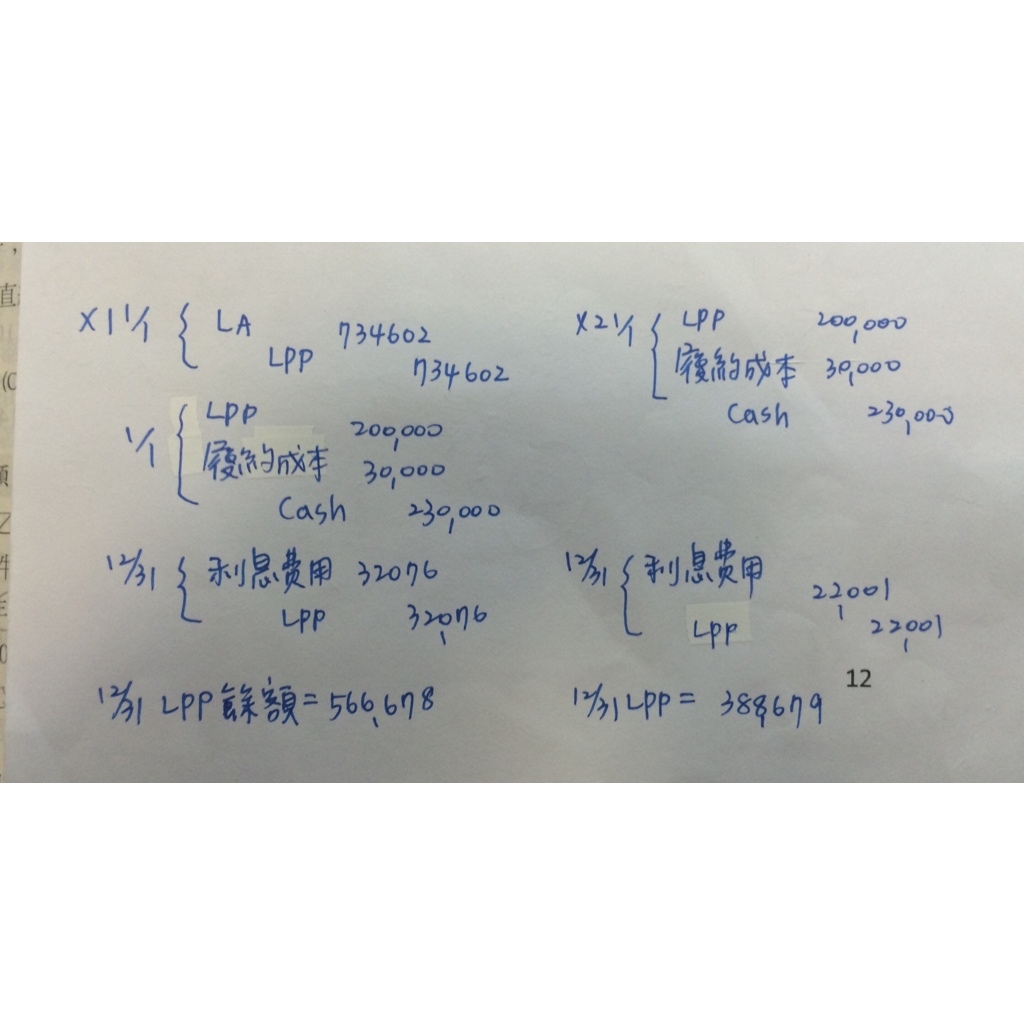 X1 1/1 { LA 734602
LPP 734602
1/1 { LPP 200,000
履約成本 30,000
Cash 230,000
12/31 { 利息費用 32076
LPP 32,076
12/31 LPP 餘額 = 566,678
X2 1/1 { LPP 200,000
履約成本 30,000
Cash 230,000
12/31 { 利息費用 22,001
LPP 22,001
12
12/31 LPP = 388,679
直
(0
乙
件